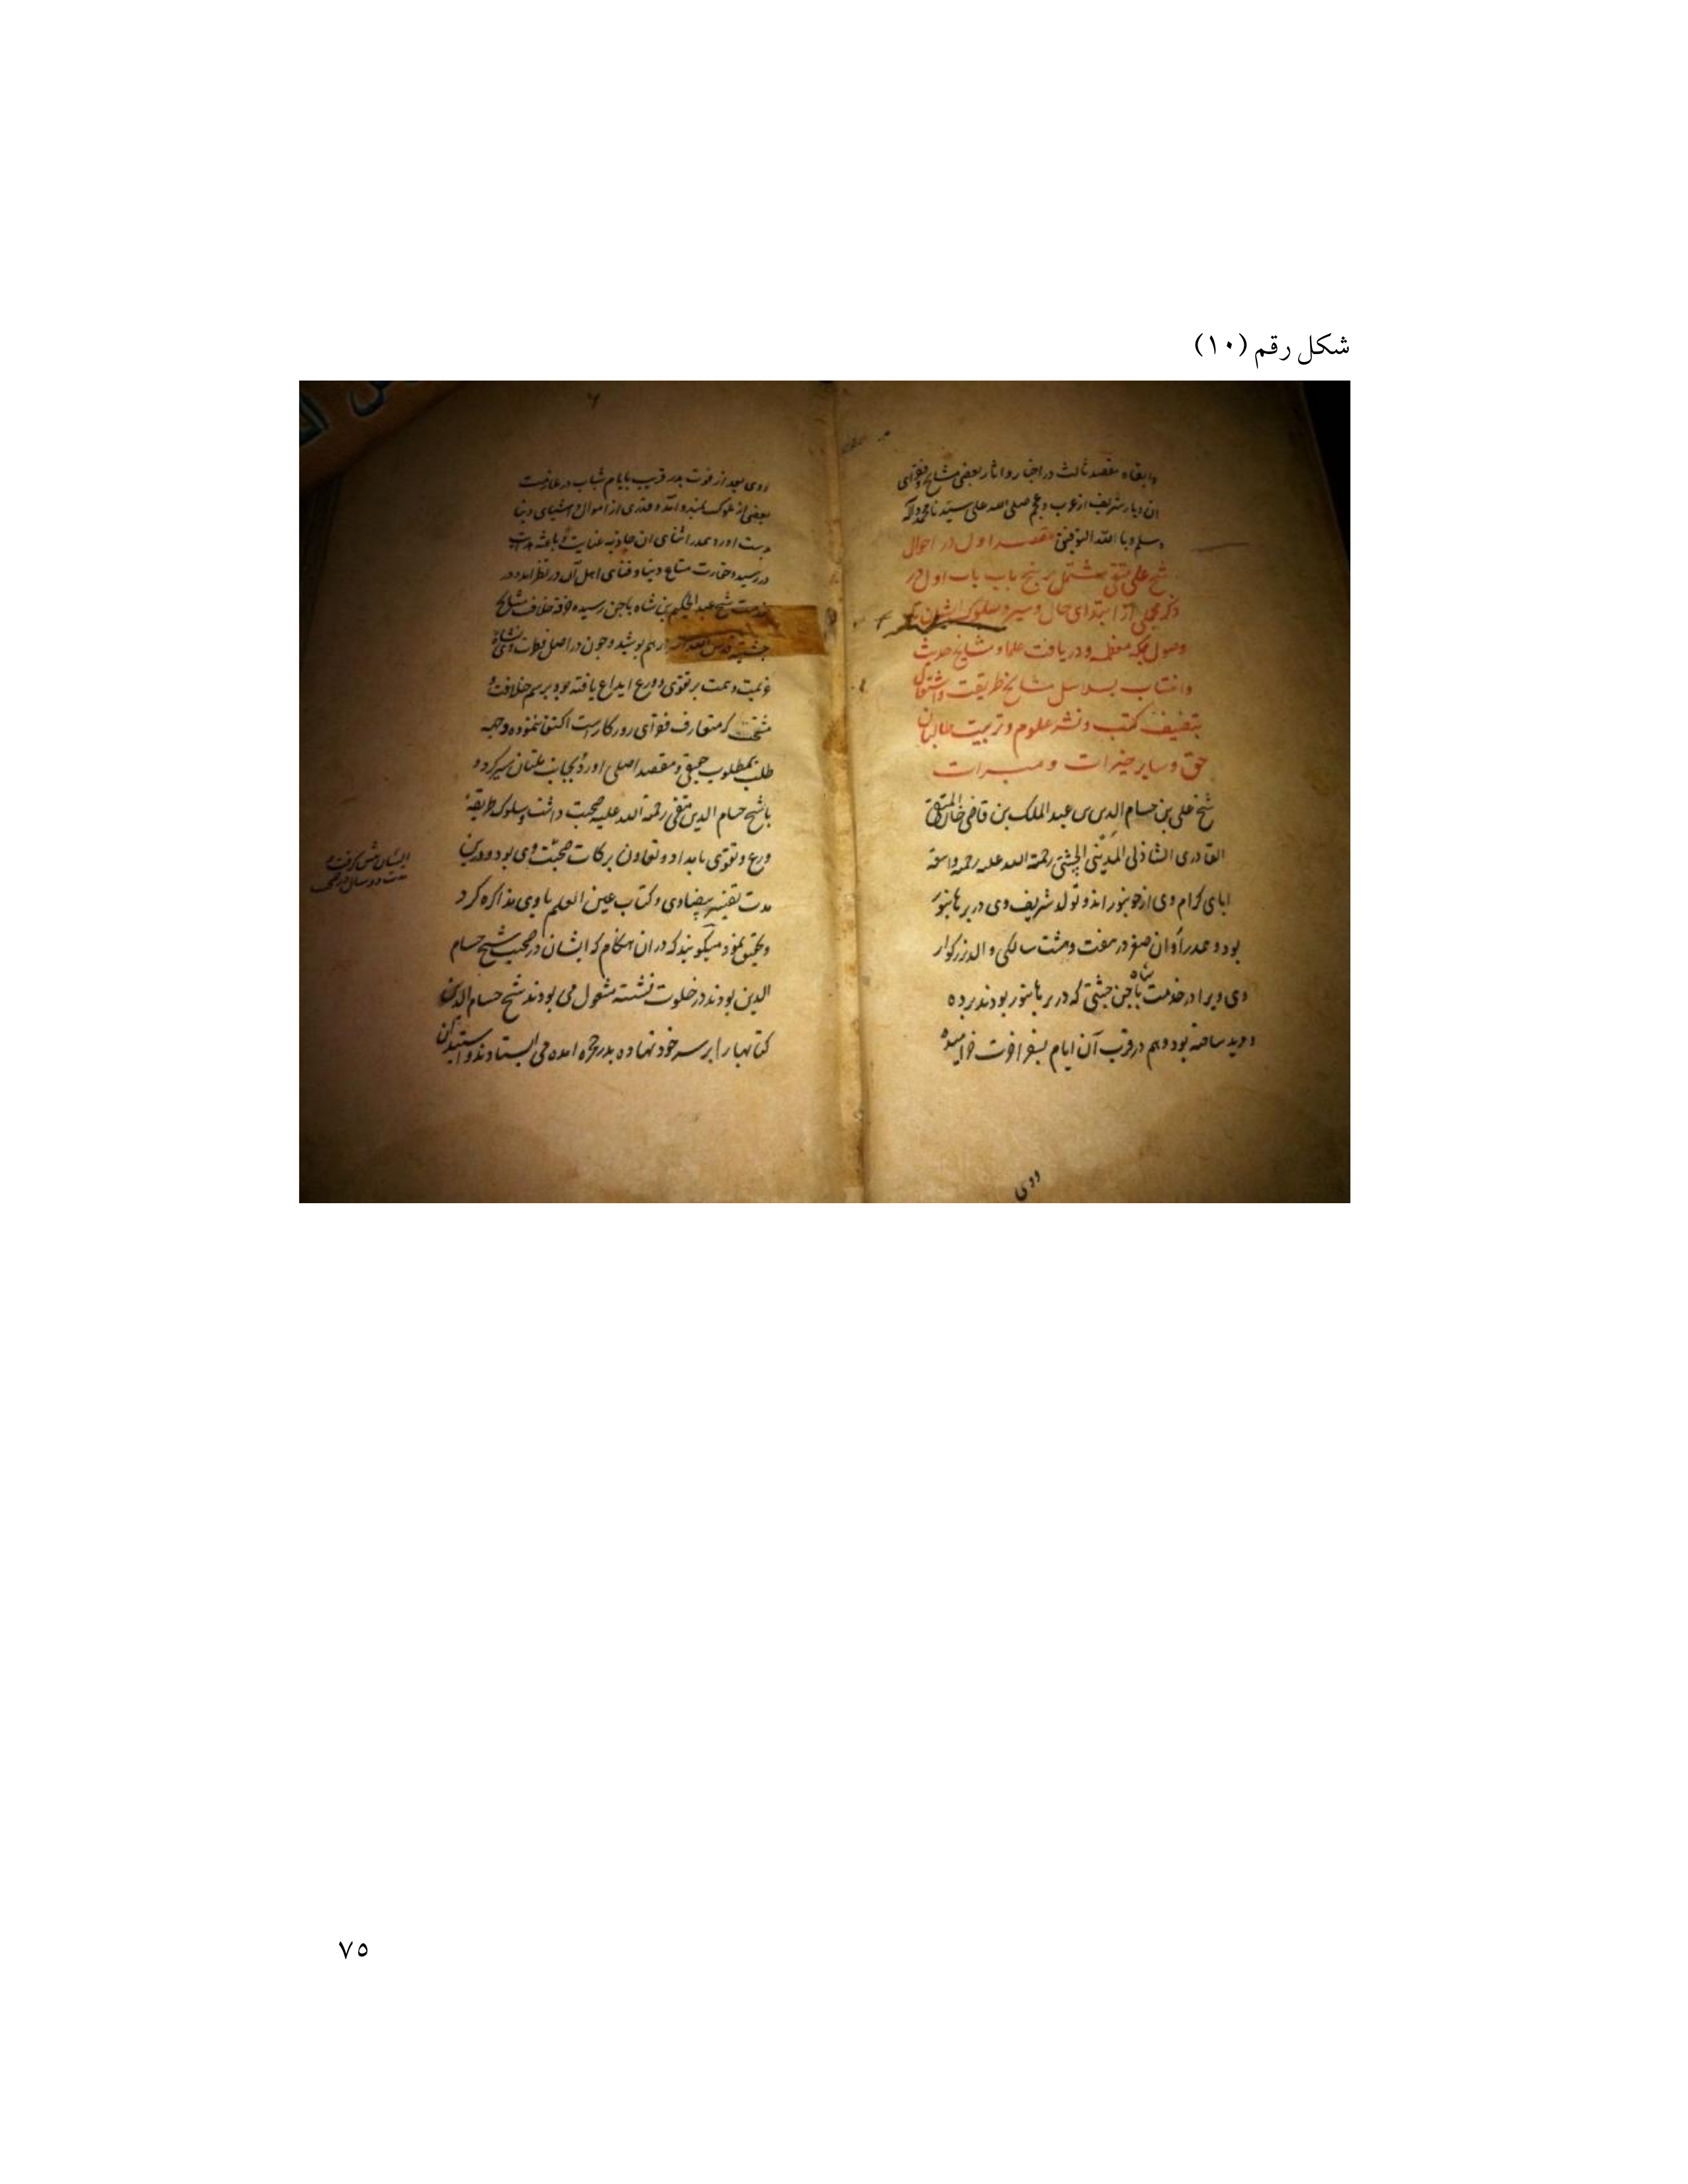 شكل رقم (١٠)
وابقاه مقصد ثالث در اخبار و اثار بعضی مشایخ و فقرای
ان دیار شریف از عرب و عجم صلی الله علی سیدنا محمد و اله
وسلم و با الله التوفیق مقصد اول در احوال
شیخ علی متقی مشتمل بر پنج باب باب اول در
ذکر مجملی از ابتدای حال و سیر و سلوک ایشان تا
وصول بمکه معظمه و دریافت علما و مشایخ حدیث
وانتساب بسلاسل مشایخ طریقت و اشتغال
بتصنیف کتب و نشر علوم و تربیت طالبان
حق و سایر خیرات و مبرات
شیخ علی بن حسام الدین بن عبد الملک بن قاضی خان المتقی
القادری الشاذلی المدینی الچشتی رحمة الله علیه رحمة واسعة
ابای کرام وی از جونپور اند و تولد شریف وی در برهانپور
بود و عمدر اوان صغر در هفت و هشت سالکی والد بزرکوار
وی ویرا در خدمت شاه باجن چشتی که در برهانپور بودند برده
و مرید ساخته بود و هم در قرب آن ایام بسفر اخرت خرامیده
ووی
ووی بعد از فوت پدر قریب بایام شباب در ملازمت
بعضی از ملوک و قدری از اموال و اشیای دنیا
بدست اورد همدر اثنای ان جاذبه عنایت و باعثه هدایت
در رسید و حقارت متاع دنیا و فنای اهل آن در نظر امد در
خدمت شیخ عبد الحکیم بن شاه باجن رسیده خرقه خلافت مشایخ
چشتیه قدس الله اسرارهم پوشید و چون در اصل فطرت
عزیمت و همت بر تقوی و ورع ایداع یافته بود برسم خلافت و
مشیخت که متعارف فقرای روزکار است اکتفا ننموده وجهه
طلب بمطلوب حقیقی و مقصد اصلی اورد بجانب ملتان سیر کرد و
با شیخ حسام الدین متقی رحمة الله علیه صحبت داشت و سلوک طریقه
ورع و تقوی بامداد و تعاون برکات صحبت وی بود و درین
مدت تفسیر بیضاوی و کتاب عین العلم با وی مذاکره کرد
و تحقیق نمود میکویند که در ان هنکام که ایشان در صحبت شیخ حسام
الدین بودند در خلوت نشسته مشغول می بودند شیخ حسام الدین
کتابها را بر سر خود نهاده بدر حجره امده می ایستادند و
ایشان پیش کرفت و
مدت دو سال در صحبت
٧٥